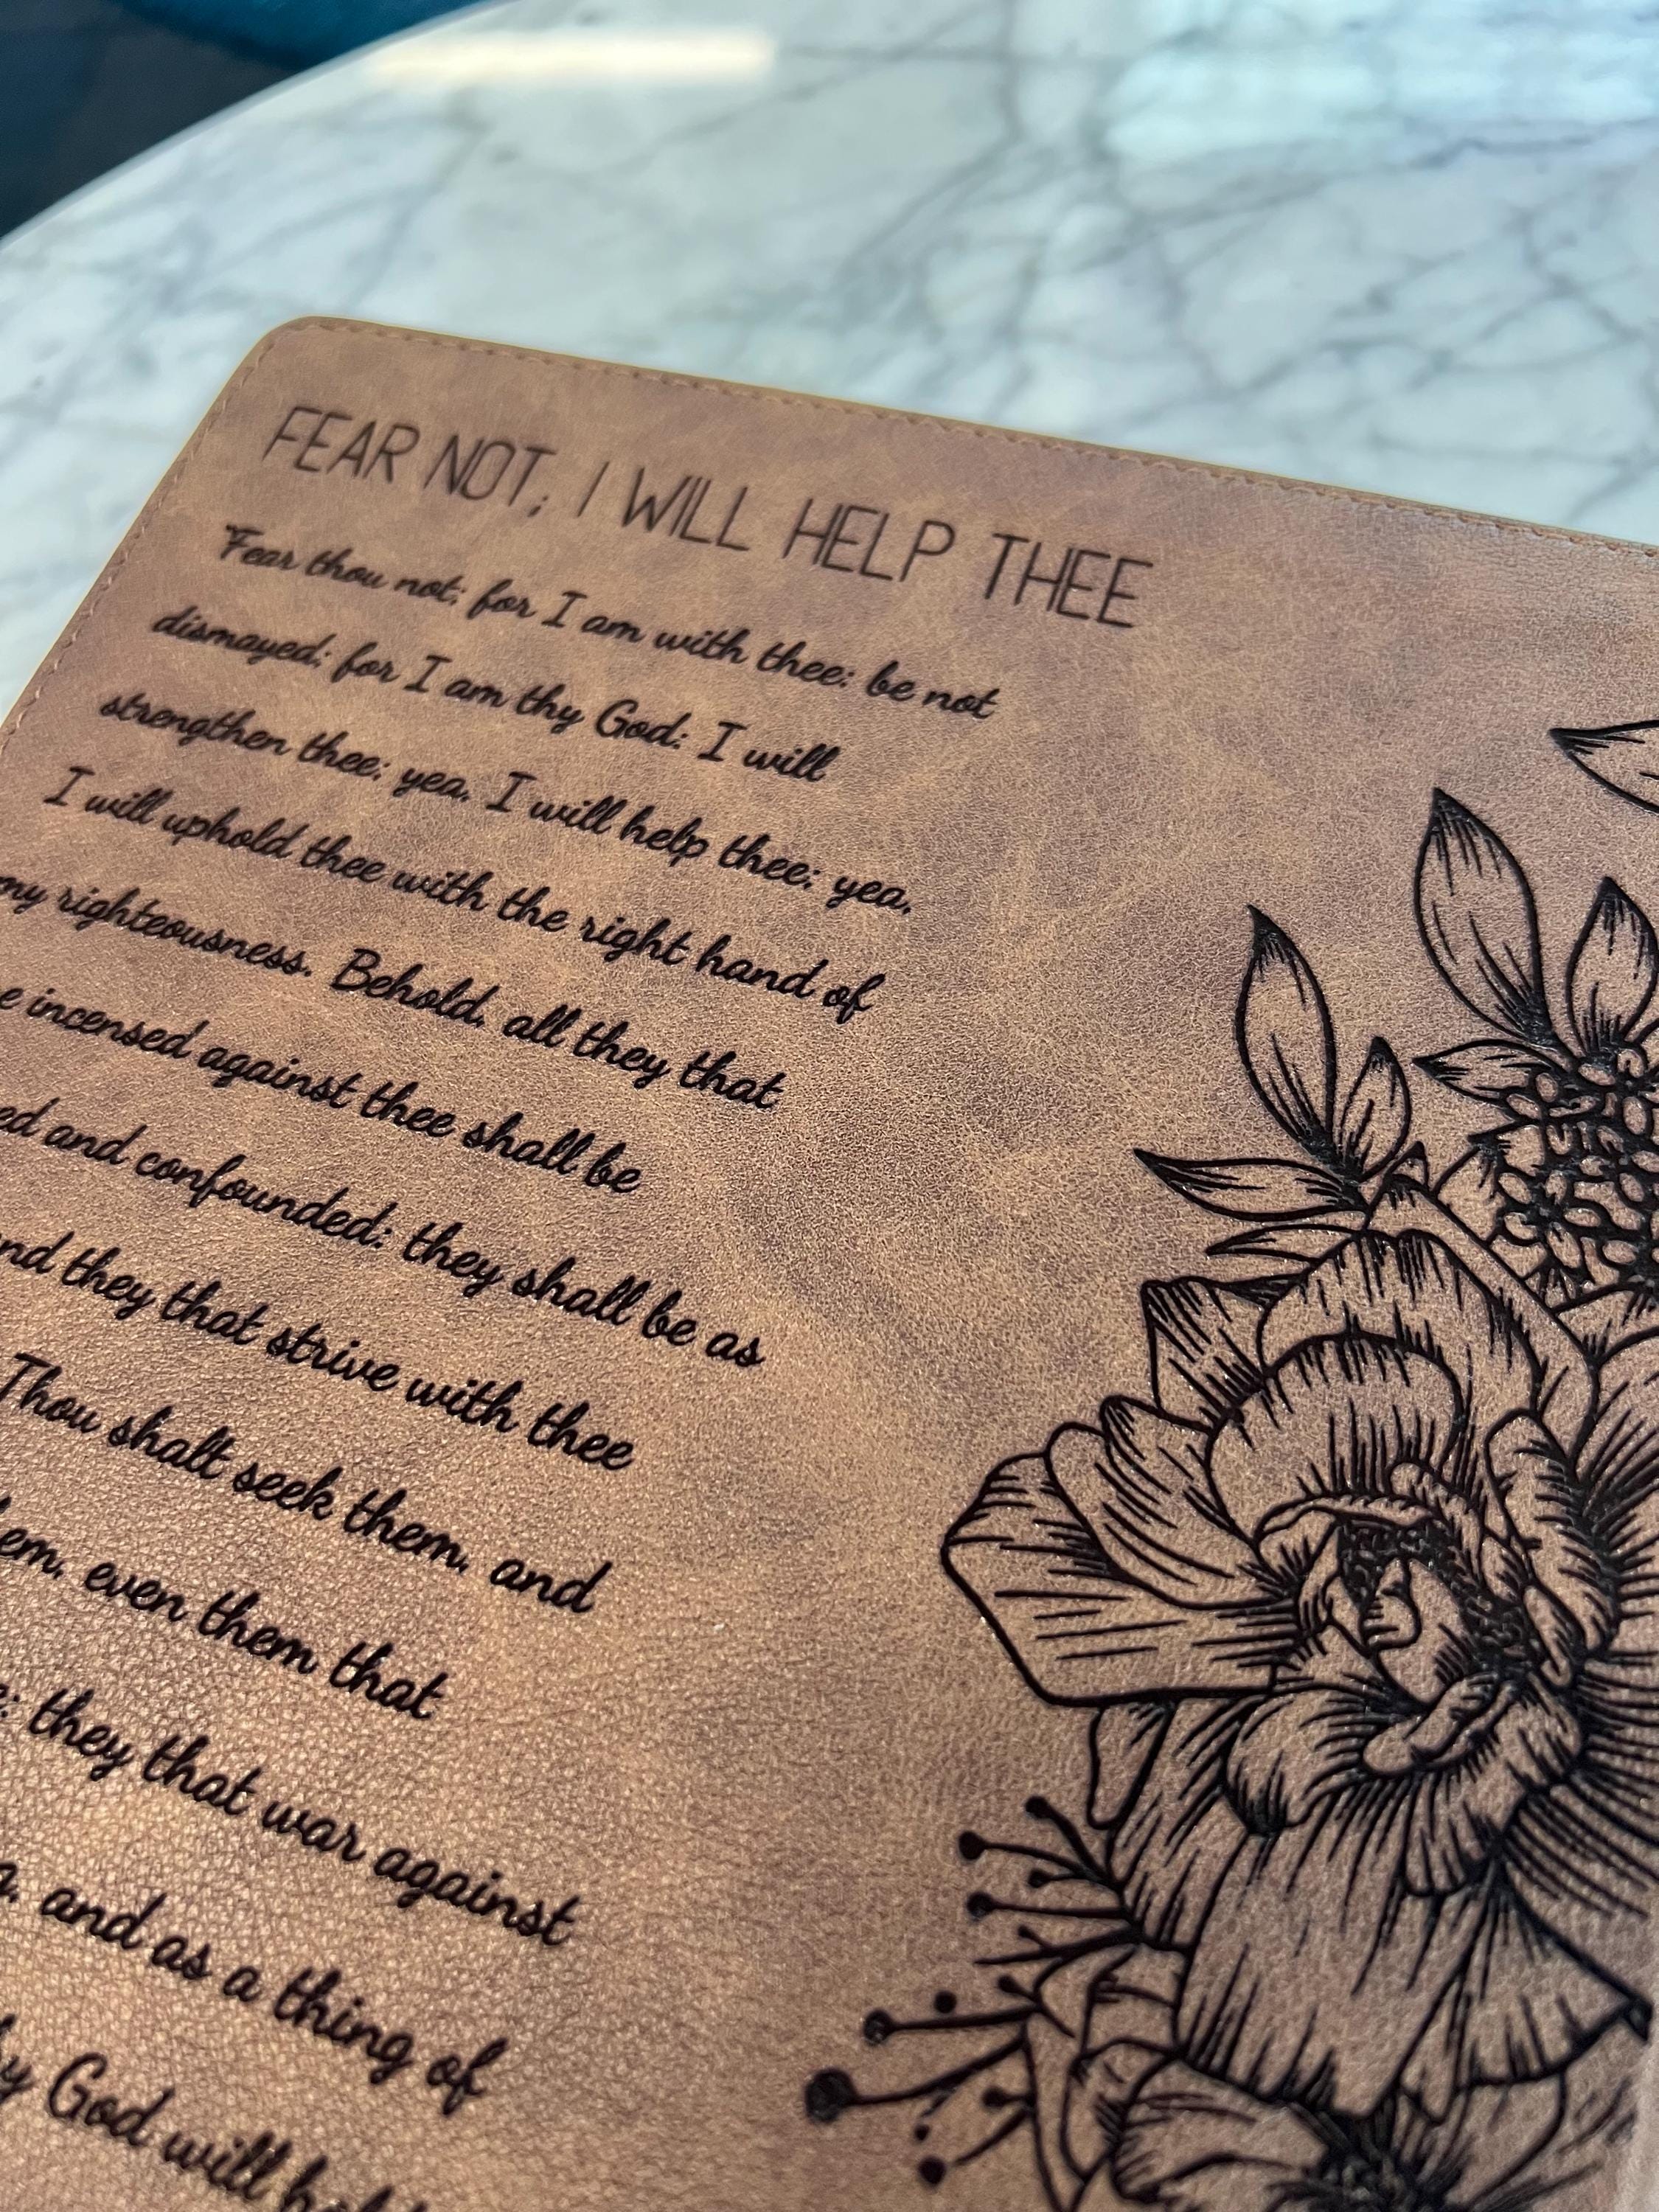 FEAR NOT; I WILL HELP THEE
"Fear thou not; for I am with thee: be not
dismayed; for I am thy God: I will
strengthen thee; yea, I will help thee; yea,
I will uphold thee with the right hand of
my righteousness. Behold, all they that
incensed against thee shall be
and confounded: they shall be as
they that strive with thee
Thou shalt seek them, and
even them that
they that war against
and as a thing of
God will